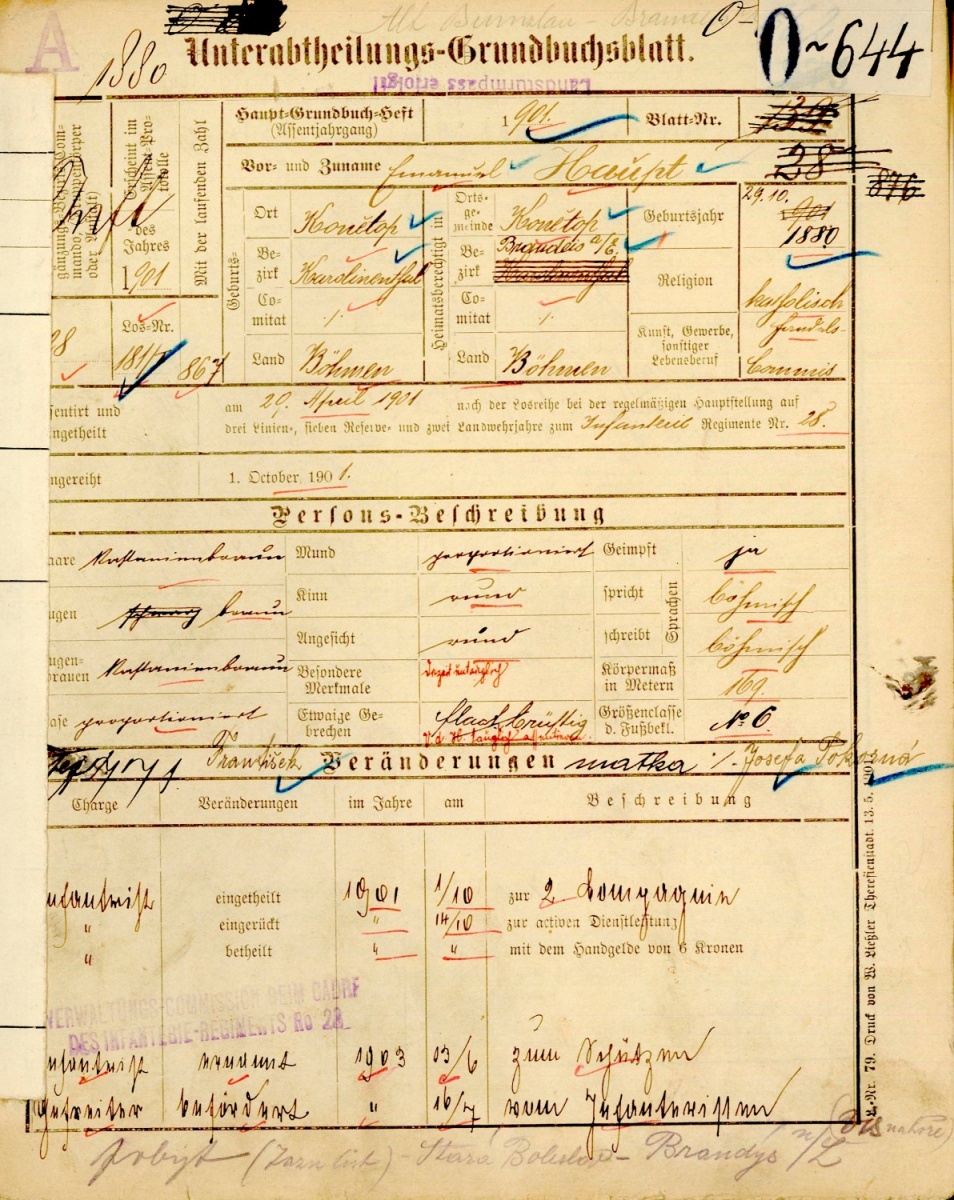 A
1880
Alt Bunzlau - Brandeis
0-644
Unterabtheilungs-Grundbuchsblatt.
Landsturmpass erfolgt
gänzungs-Bezirks-Com-
mando
oder Anstalt)
Erscheint im
Assent-Pro-
tokolle
des
Jahres
1901
Mit der laufenden Zahl
Los-Nr.
28
867
Haupt-Grundbuch-Heft
(Assentjahrgang)
1901.
Blatt-Nr.
28
876
Vor- und Zuname Emanuel Haupt
Geburts-
Ort Konětop
Bezirk Karolinenthal
Comitat ./.
Land Böhmen
Heimatsberechtigt in
Ortsgemeinde Konětop
Bezirk Brandeis a/E.
Karolinenthal
Comitat ./.
Land Böhmen
Geburtsjahr
29.10.
1901
1880
Religion
katholisch
Kunst, Gewerbe,
sonstiger
Lebensberuf
Handels-
Commis
sentirt und
ngetheilt
am 29. April 1901 nach der Losreihe bei der regelmäßigen Hauptstellung auf
drei Linien-, sieben Reserve- und zwei Landwehrjahre zum Infanterie Regimente Nr. 28.
ngereiht
1. October 1901.
Persons-Beschreibung
aare kastanienbraun
Mund proportioniert
Geimpft ja
ugen schwarz braun
Kinn rund
Sprachen
spricht böhmisch
Angesicht rund
schreibt böhmisch
ugen-
brauen kastanienbraun
Besondere
Merkmale
Körpermaß
in Metern 169.
ase proportioniert
Etwaige Ge-
brechen
Größenclasse
d. Fußbekl. No 6
František
Veränderungen
matka ./. Josefa Pokorná
Charge
Veränderungen
im Jahre
am
Beschreibung
nfanterist eingetheilt 1901 1/10 zur 2 Compagnie
" eingerückt " 14/10 zur activen Dienstleistung
" betheilt " " mit dem Handgelde von 6 Kronen
VERWALTUNGS-COMMISSION BEIM CADRE
DES INFANTERIE-REGIMENTS No 28
nfanterist ernannt 1903 03/6 zum Schützen
Gefreiter befördert " 16/7 vom Infanteristen
L.-Nr. 79. Druck von W. Ließler Theresienstadt. 13. 5. 190
Stará Boleslav - Brandýs /L
nahoře)